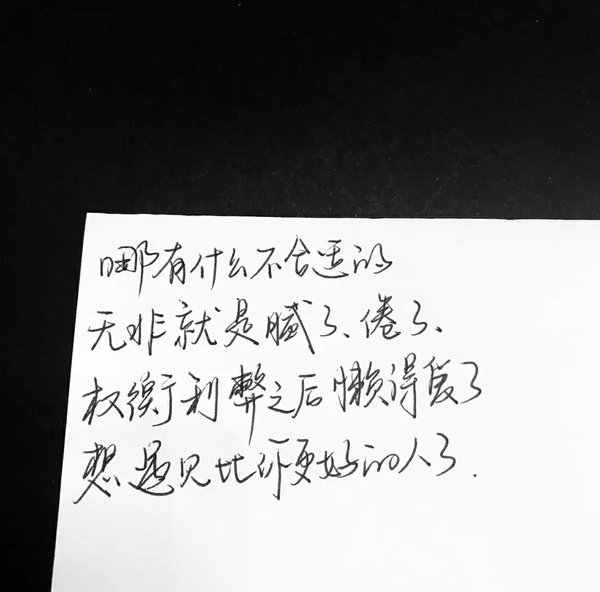 哪有什么不合适的
无非就是腻了、倦了、
权衡利弊之后懒得爱了
想遇见比你更好的人了.